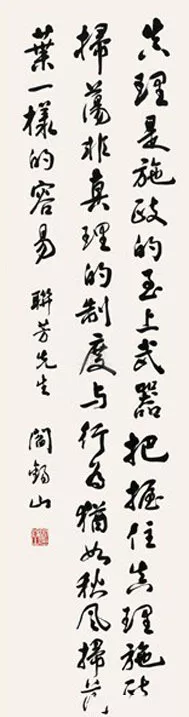 真理是施政的至上武器把握住真理施政
掃蕩非真理的制度与行為猶如秋風掃落
葉一樣的容易 聯芳先生 閻錫山